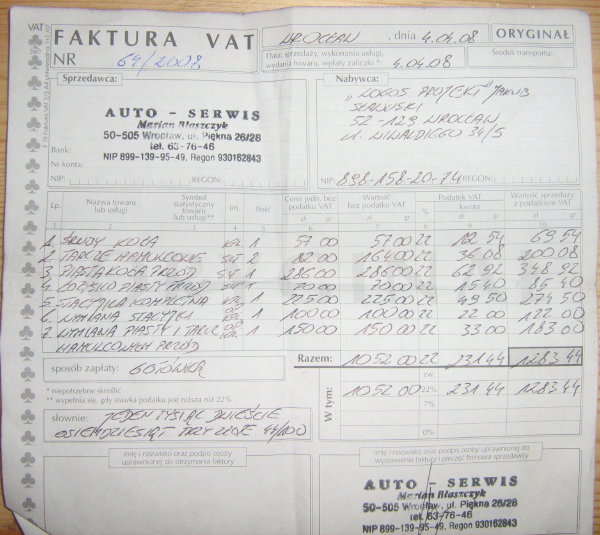 FAKTURA VAT
NR 64/2008
WROCŁAW, dnia 4.04.08
ORYGINAŁ
Data: sprzedaży, wykonania usługi,
wydania towaru, wpłaty zaliczki * 4.04.08
Środek transportu:
Sprzedawca:
AUTO - SERWIS
Marian Błaszczyk
50-505 Wrocław, ul. Piękna 26/28
tel. 63-76-46
NIP 899-139-95-49, Regon 930162843
Bank:
Nr konta:
NIP: REGON:
Nabywca:
"LOGOS PROJEKT" JAKUB
52-129 WROCŁAW
ul. WIWALDIEGO 34/5
NIP: 898-158-20-74 REGON:
Lp. Nazwa towaru lub usługi Symbol statystyczny towaru lub usługi** Jm. Ilość Cena jedn. bez podatku VAT Wartość bez podatku VAT Podatek VAT % kwota Wartość sprzedaży z podatkiem VAT
zł gr zł gr zł gr zł gr
1. ŚRUBY KOŁA 1 57 00 57 00 22 12 54 69 54
2. TARCZE HAMULCOWE SZT 2 82 00 164 00 22 36 08 200 08
3. PIASTA KOŁA PRZÓD SZT 1 286 00 286 00 22 62 92 348 92
4. ŁOŻYSKO PIASTY PRZÓD SZT 1 70 00 70 00 22 15 40 85 40
5. STACYJKA KOMPLETNA 1 225 00 225 00 22 49 50 274 50
6. WYMIANA STACYJKI 1 100 00 100 00 22 22 00 122 00
7. WYMIANA PIASTY I TARCZ 1 150 00 150 00 22 33 00 183 00
HAMULCOWYCH PRZÓD
Razem: 1052 00 22 231 44 1283 44
sposób zapłaty: GOTÓWKA
zw.
W tym: 1052 00 22% 231 44 1283 44
7%
0%
* niepotrzebne skreślić
** wypełnia się, gdy stawka podatku jest niższa niż 22%
słownie: JEDEN TYSIĄC DWIEŚCIE
OSIEMDZIESIĄT TRZY ZŁOTE 44/100
imię i nazwisko oraz podpis osoby
uprawnionej do otrzymania faktury
imię i nazwisko oraz podpis osoby uprawnionej do
wystawienia faktury i pieczęć firmowa sprzedawcy
AUTO - SERWIS
Marian Błaszczyk
50-505 Wrocław, ul. Piękna 26/28
tel. 63-76-46
NIP 899-139-95-49, Regon 930162843